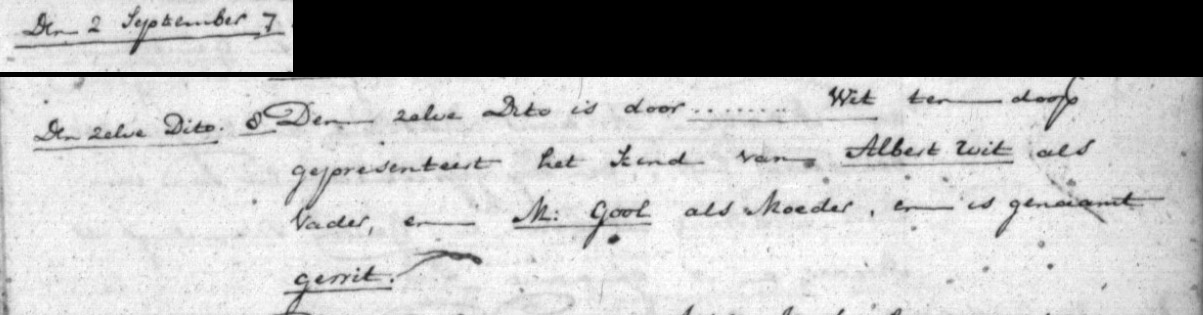 Den 2 September 7
Den zelve Dito. 8 Den zelve Dito is door ........ Wit ten doop
gepresenteert het kind van Albert Wit als
Vader, en M: Gool als Moeder, en is genaamt
gerrit.